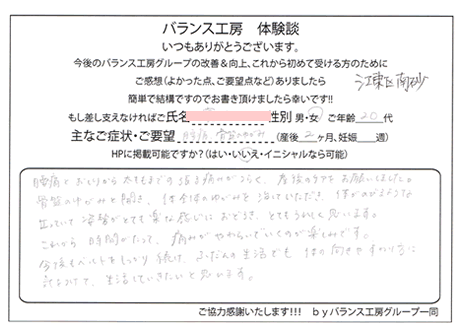 バランス工房　体験談
いつもありがとうございます。
今後のバランス工房グループの改善&向上、これから初めて受ける方のために
ご感想(よかった点、ご要望点など)ありましたら
江東区南砂
簡単で結構ですのでお書き頂けましたら幸いです!!
もし差し支えなければご氏名 性別 男・女 ご年齢 20 代
主なご症状・ご要望 腰痛、骨盤のゆがみ (産後 2 ヶ月、妊娠 週)
HPに掲載可能ですか?(はい・いいえ・イニシャルなら可能)
腰痛と おしりから太ももまでの 痛みがつらく、産後のケアをお願いしました。
骨盤のゆがみと 開き、体全体のゆがみを 治していただき、体がのびるような
立っていて 姿勢がとても楽な感じに おどろき、とてもうれしく思います。
これから 時間がたって、痛みがやわらいでいくのが楽しみです。
今後もベルトをしっかり 続け、ふだんの生活でも 体の向きや すわり方に
気をつけて、生活していきたいと思います。
ご協力感謝いたします!!!　byバランス工房グループ一同